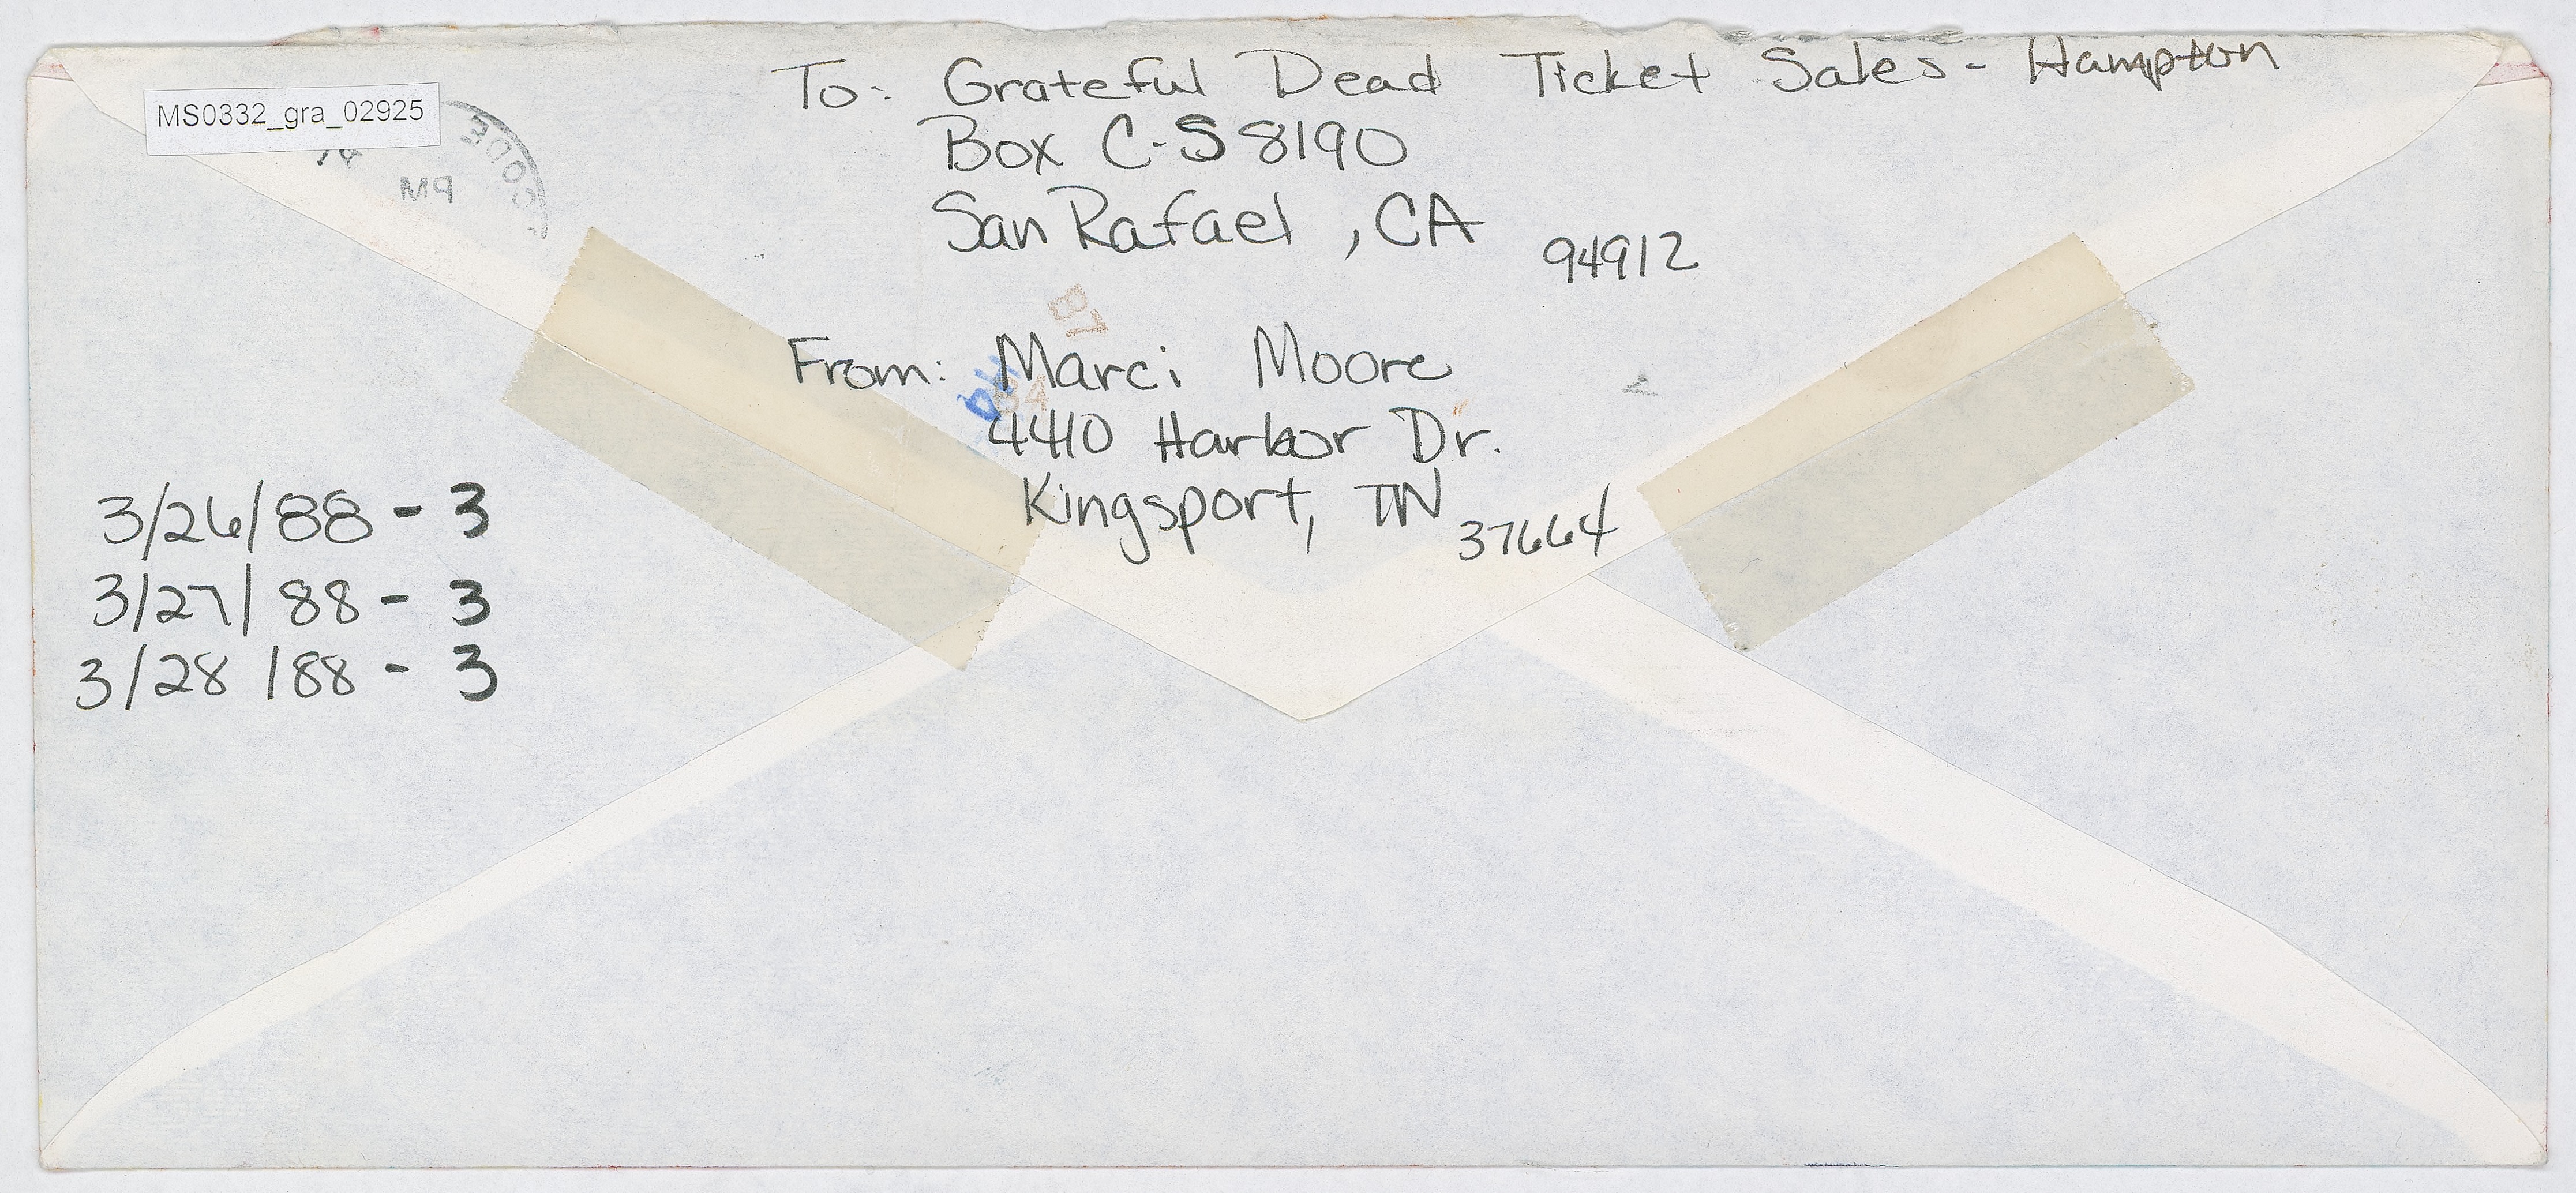 To: Grateful Dead Ticket Sales - Hampton
MS0332_gra_02925
Box C-S 8190
PM
San Rafael, CA 94912
From: Marci Moore
4410 Harbor Dr.
Kingsport, TN 37664
3/26/88 - 3
3/27/88 - 3
3/28/88 - 3